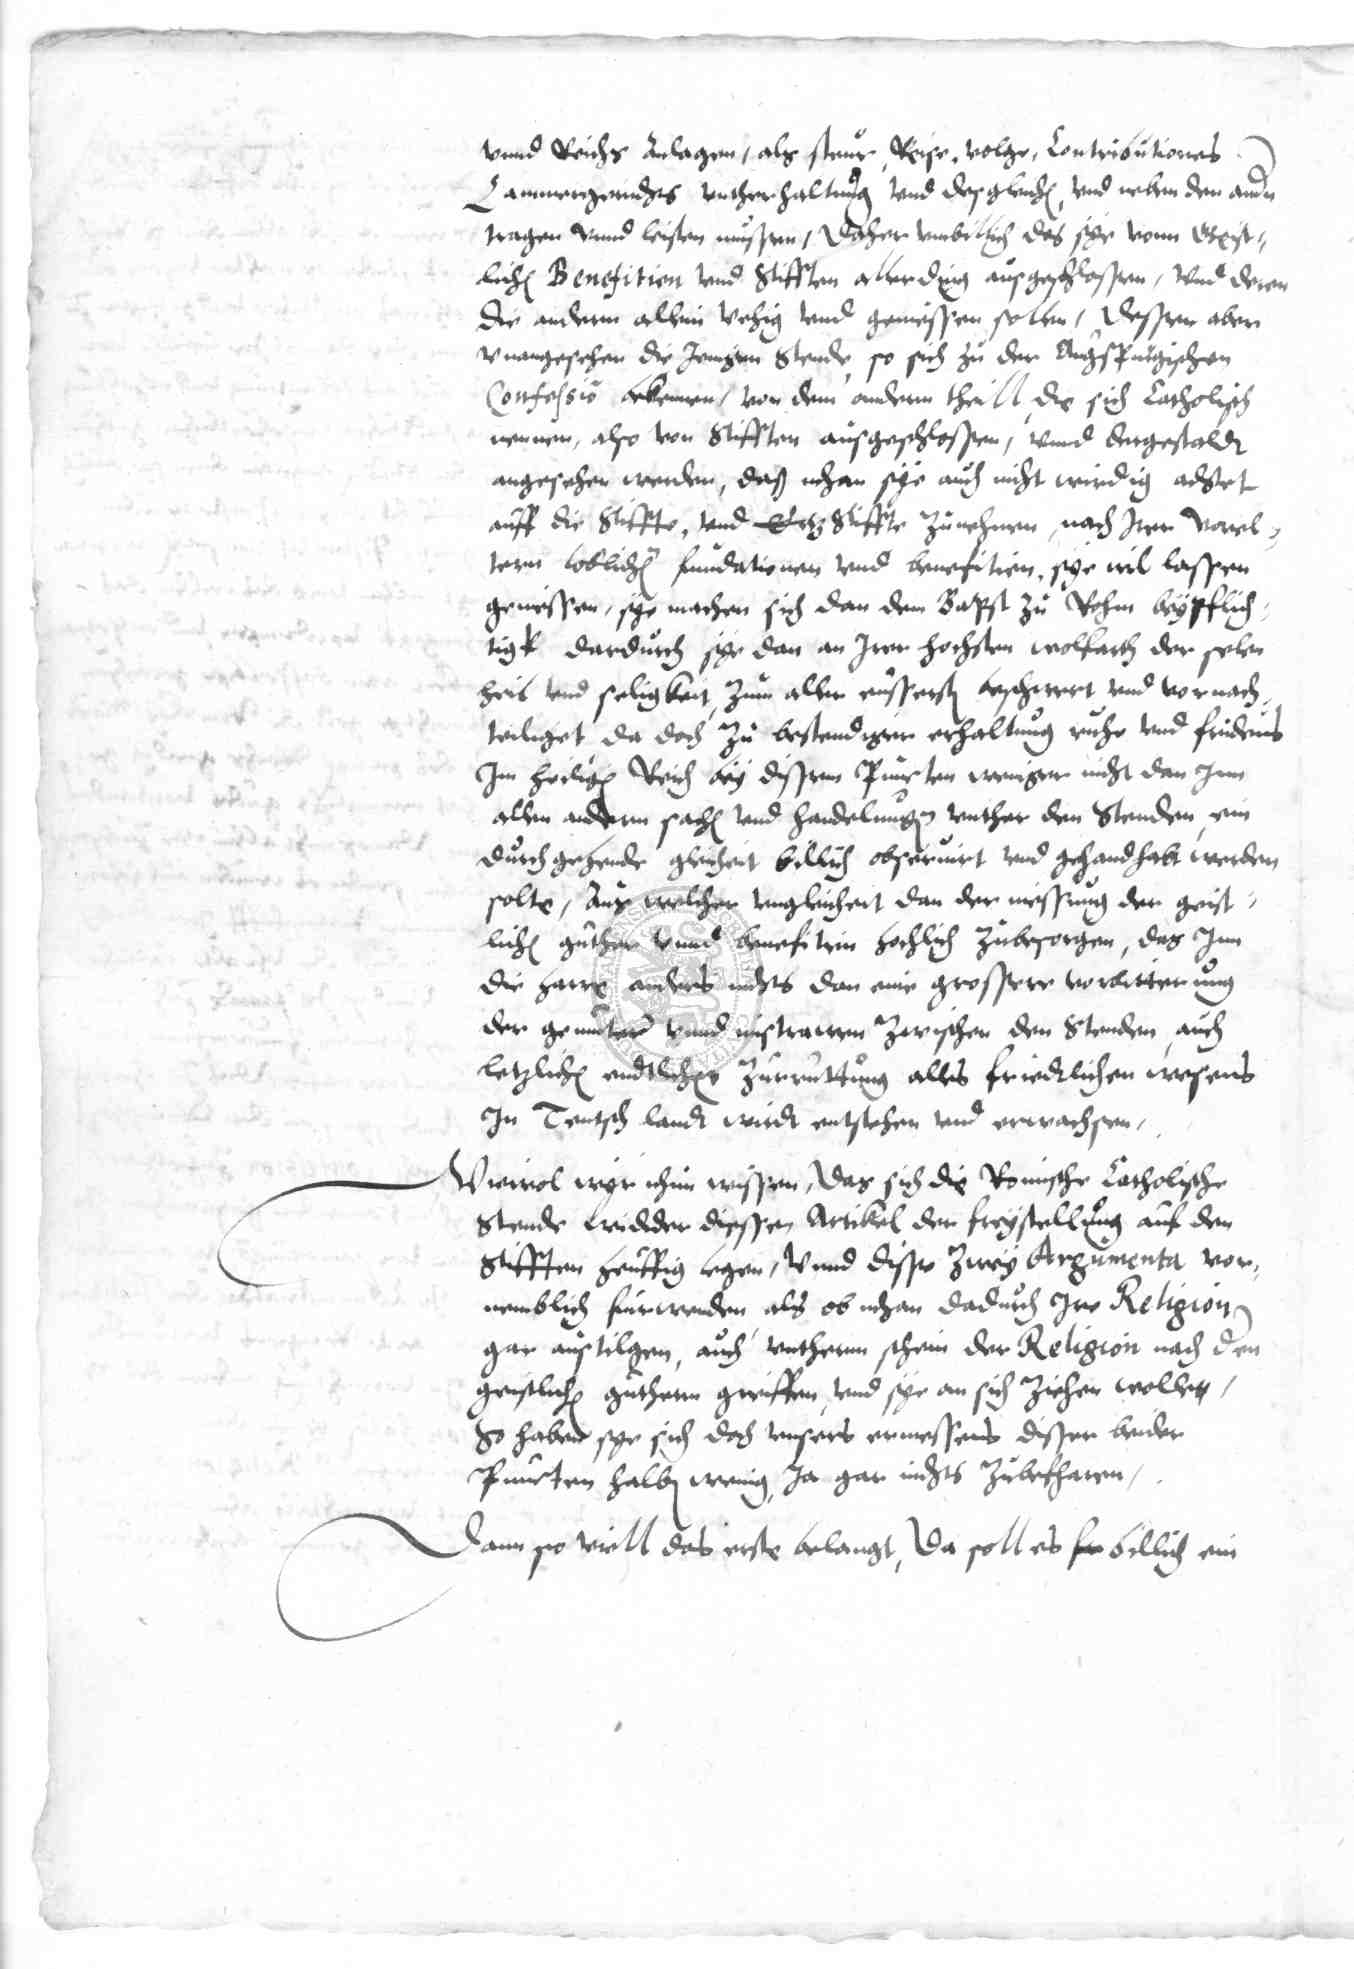 vnnd Reichs Anlagen, als steur, Reise, volge, Contributiones
Cammergerichts vntherhaltung vnd desgleichen, vnd neben den andern
tragen vnnd leisten mussen, Daher vnbillich das sye vonn Geist-
lichen Benefitien vnd Stifften allerding ausgeschlossen, vnd deren
die andern allein vehig vnd geniessen sollen, Dessen aber
vnangesehen die Jenigen Stende, so sich zu der Augspurgischen
Confessio bekennen, von dem andern theill, die sich Catholisch
nennen, also von Stifften ausgeschlossen, vnnd dergestaldt
angesehen werden, daß mhan sye auch nicht wirdig achtet
auff die Stiffte, vnd ErtzStiffte zunehmen, nach Irer Vorel-
tern loblichen fundationen vnd benefitien, sye wil lassen
geniessen, sye machen sich dan dem Bapst zu Rohm beypflich-
tigk dardurch sye dan an Irer hochsten wolfarth der selen
heil vnd seligkeit, zum aller eussersten beschwert vnd vornach-
teiliget, da doch zu bestendiger erhaltung ruhe vnd fridens
Im heiligen Reich bey dissem Puncten weniger nicht dan Inn
allen andern sachen vnd handelungen vnther den Stenden, ein
durchgehende gleicheit billich obseruirt vnd gehandhabt werden
solte, Aus welcher vngleicheit dan der niessung der geist-
lichen guther vnnd benefitien hochlich zubesorgen, das Inn
die harre anders nichts dan eine grossere vorbitterung
der gemuter vnnd mistrawen zwischen den Stenden, auch
letzlichen endtlicher zurruttung alles friedtlichen wesens
In Teutschlandt wirdt entstehen vnd erwachsen,
Wiewol wyr ichm wissen, Das sich die Romische Catholische
Stende widder diessen Artikel der freystellung auf den
Stifften heufftig legen, Vnnd disse zwey Argumenta vor-
nemblich furwenden, als ob mhan dadurch Ire Religion
gar austilgen, auch vntherm schein der Religion nach den
geistlichen guthern greiffen, vnd sye an sich ziehen wolle,
So haben sye sich doch vnsers ermessens disser beider
Puncten halben wenig, Ja gar nichts zubefharen,
Dann so viell das erste belangt, Da soll es billich ein